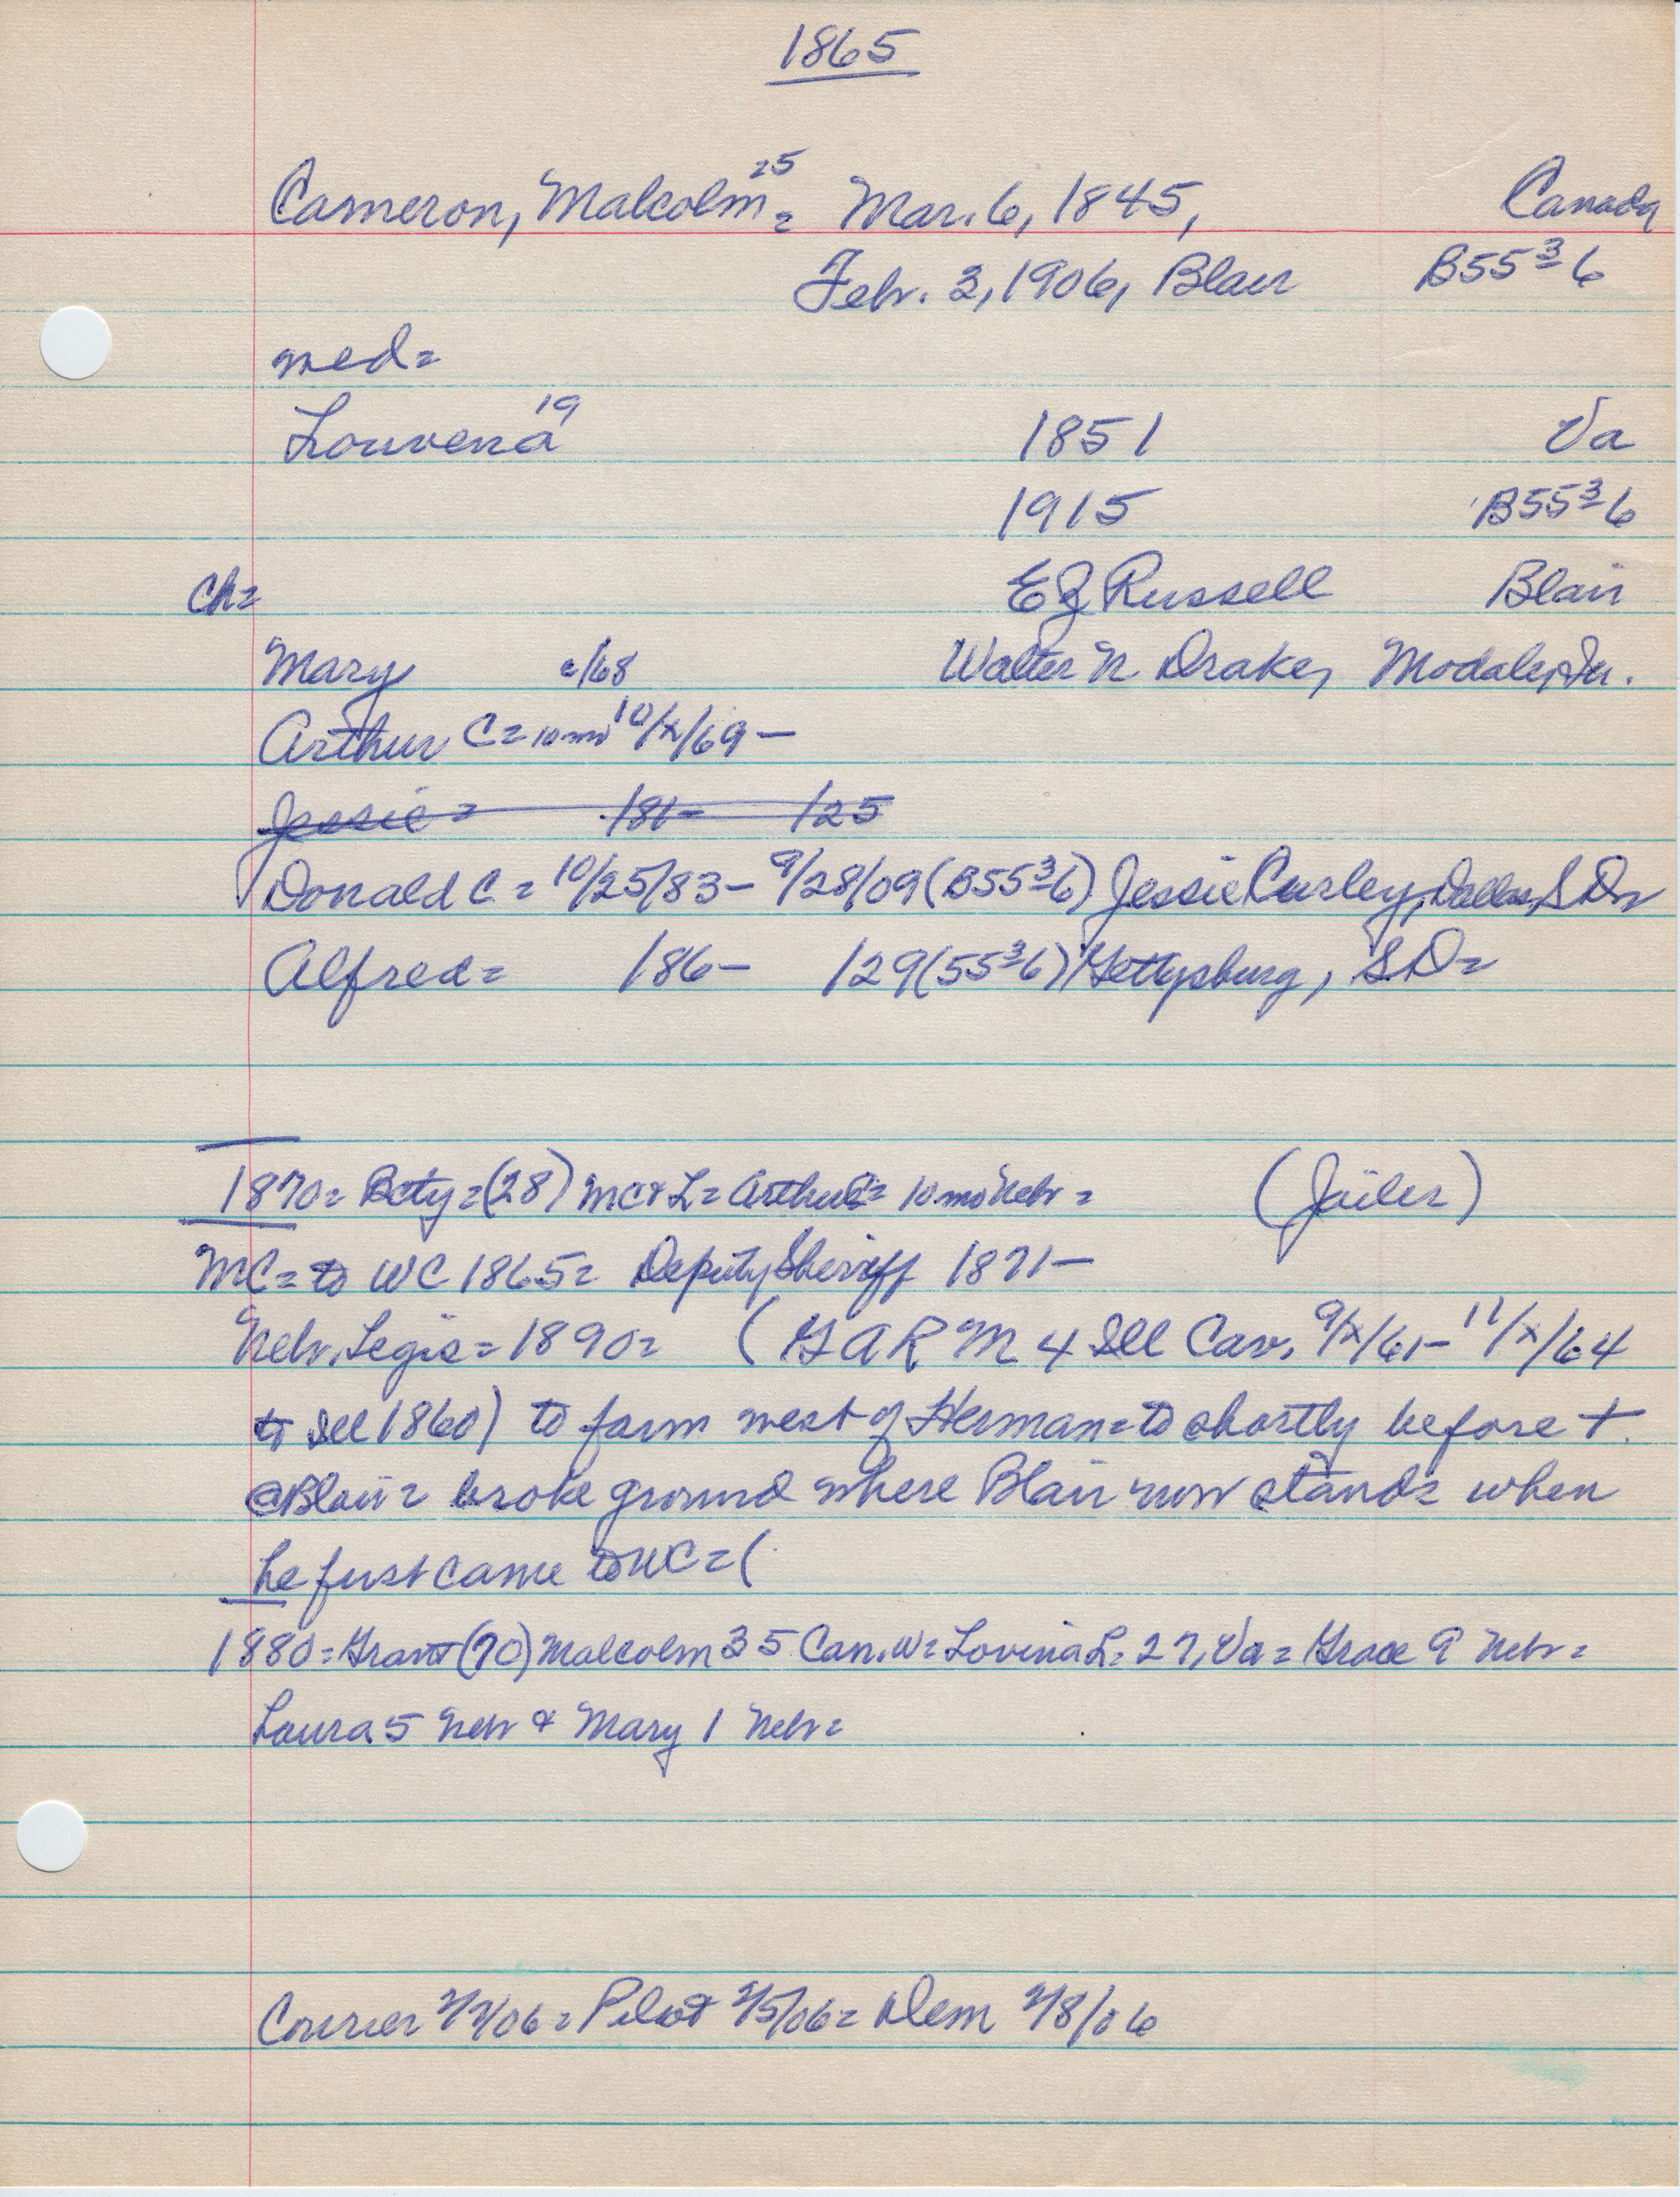 1865
Cameron, Malcolm 25 = Mar. 6, 1845, Canada
Feb. 3, 1906, Blair B55 3 6
med=
Louvena 19 1851 Va
1915 B55 3 6
Ch= E J Russell Blair
Mary c/68 Walter N Drake, Modale, Ia.
Arthur C= 10 mo 10/x/69 —
Jessie = /81- /25
Donald C = 10/25/83 - 9/28/09 (B55 3 6) Jessie Curley, Dallas, S D=
Alfred= /86- /29 (55 3 6) Gettysburg, S.D=
1870= Bcty = (28) MC & L = Arthur C= 10 mo Nebr = (Jailer)
MC= to WC 1865= Deputy Sheriff 1871-
Nebr. Legis = 1890= (G A R M 4 Ill Cav. 9/x/61- 11/x/64
to Ill 1860) to farm west of Herman= to shortly before +.
@Blair= broke ground where Blair now stands when
he first came to WC = (
1880= Grant (70) Malcolm 35 Can. W= Lovina L= 27, Va = Grace 9 Nebr =
Laura 5 Nebr & Mary 1 Nebr=
Courier 2/7/06 = Pilot 2/5/06 = Dem 2/8/06